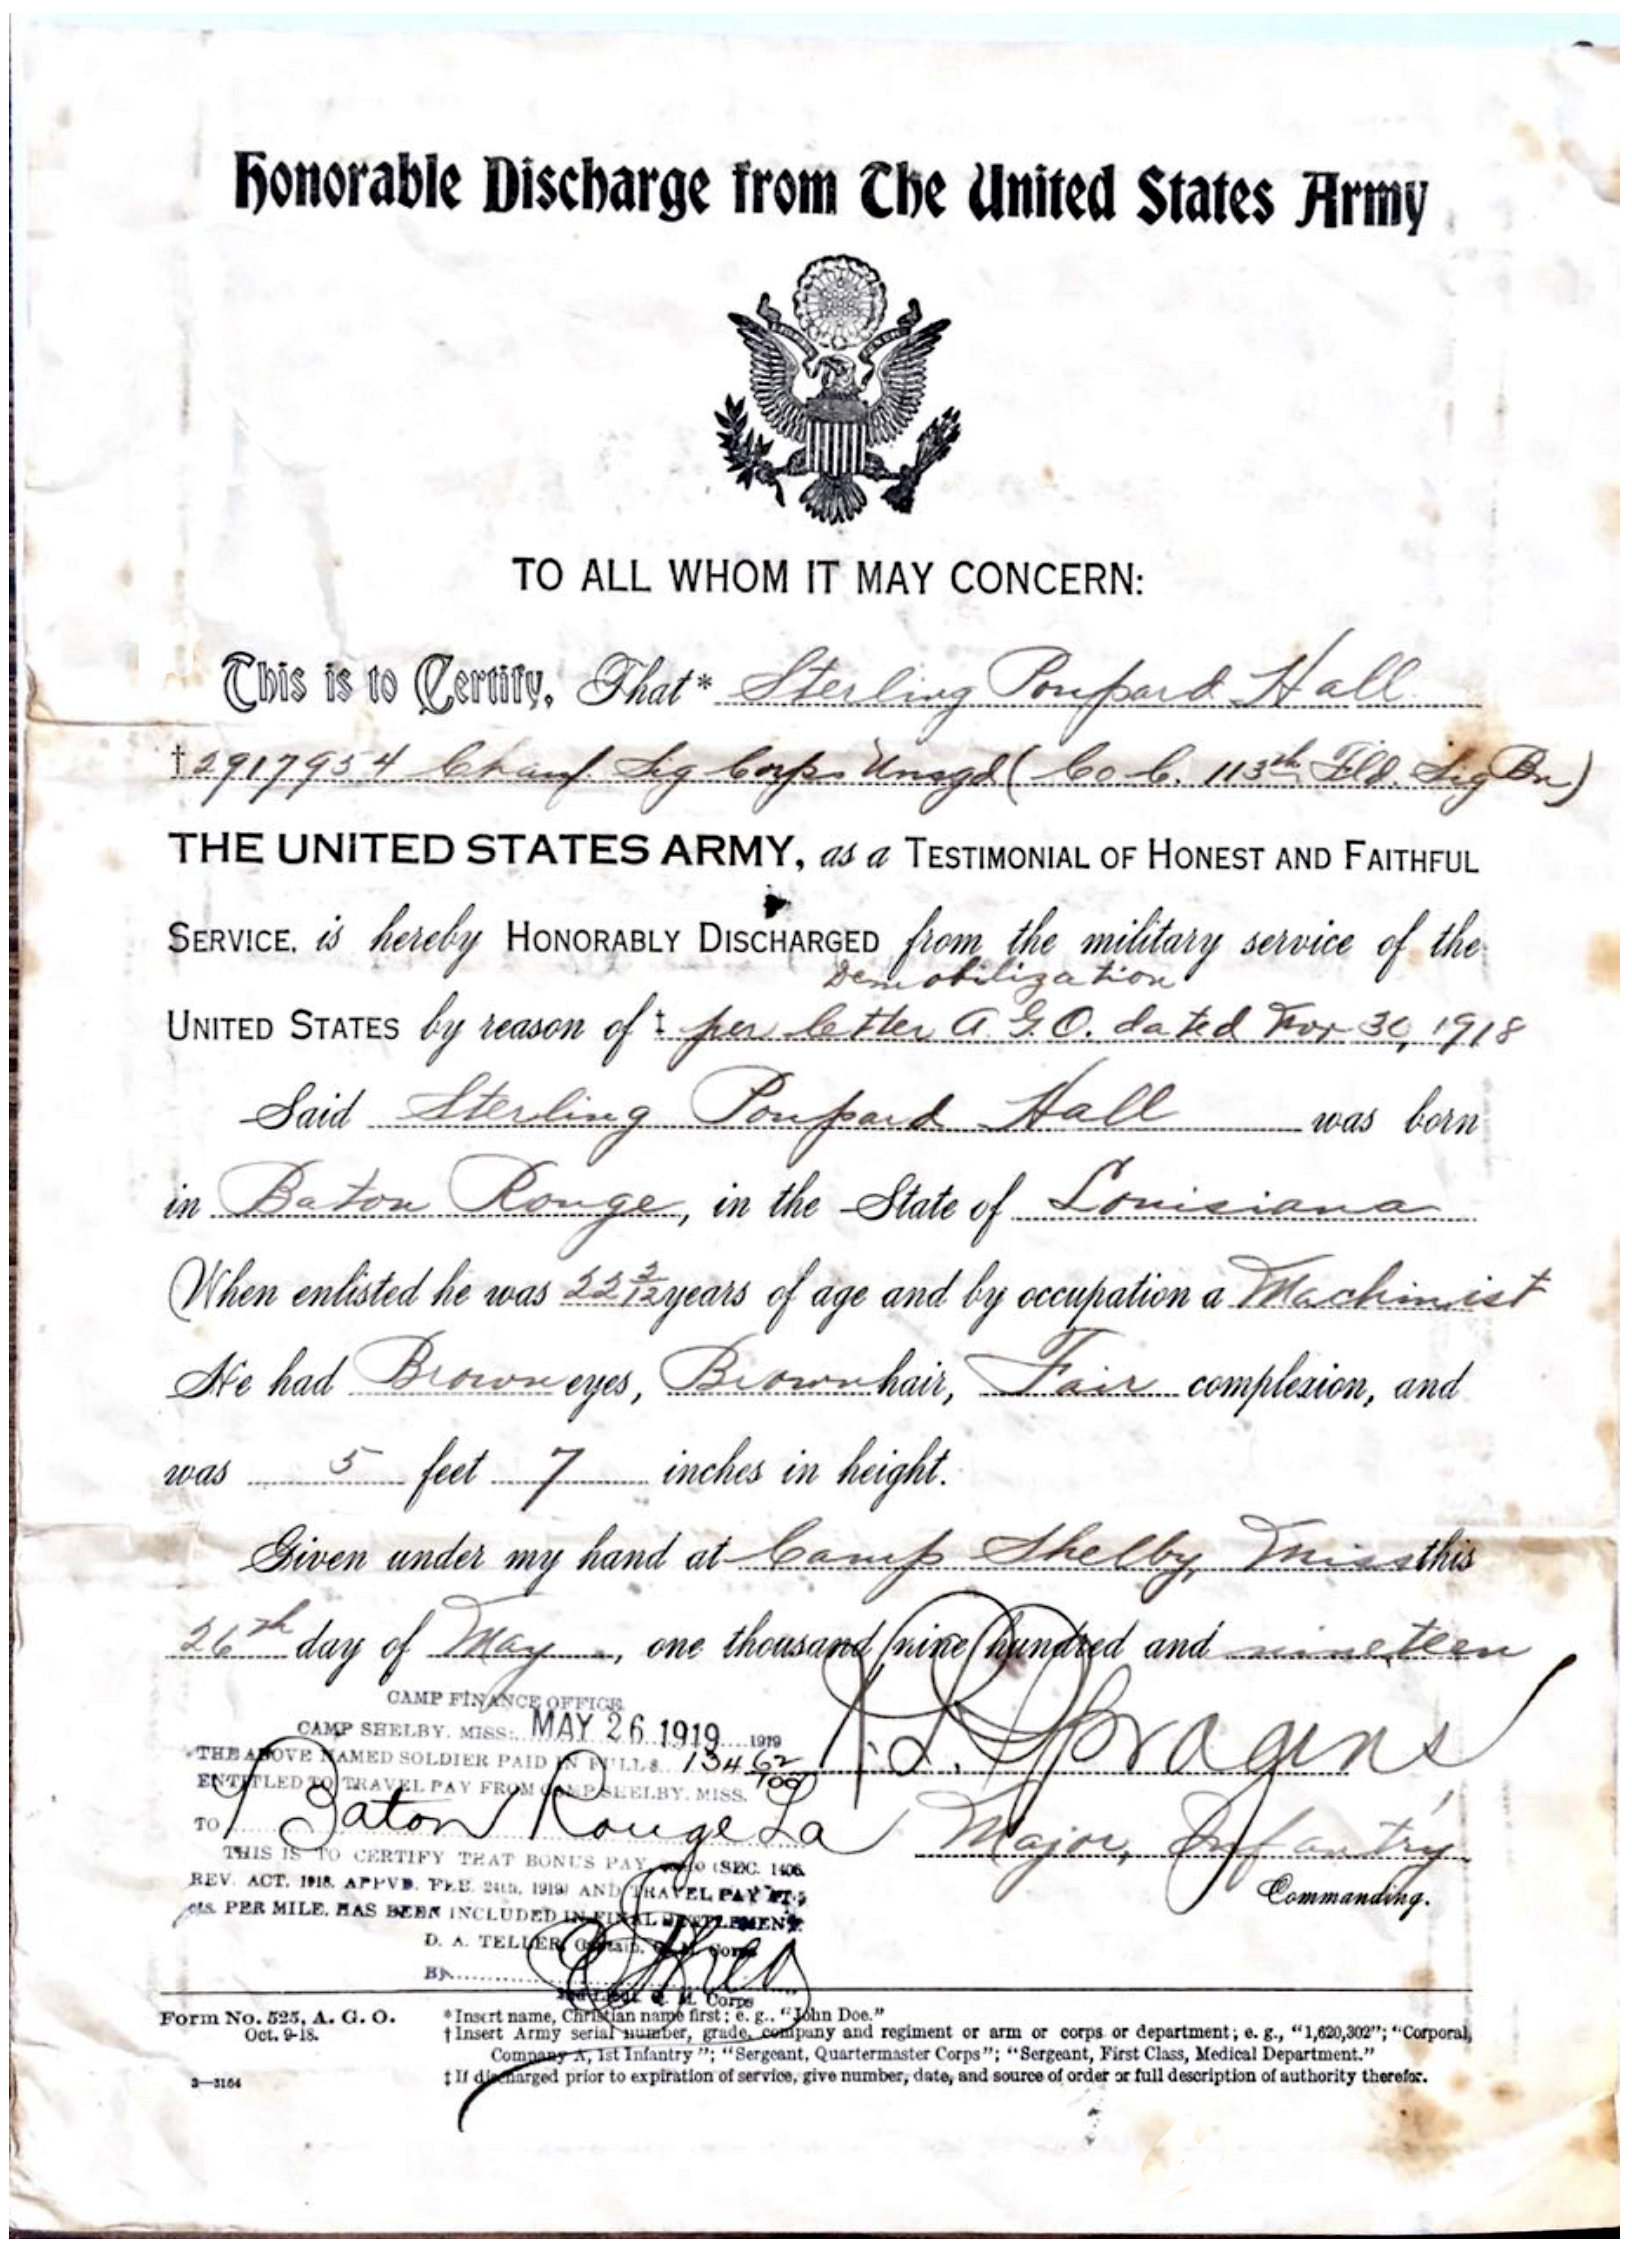 Honorable Discharge from The United States Army
TO ALL WHOM IT MAY CONCERN:
This is to Certify, That* Sterling Poupard Hall
†2917954 Chauf. Sig Corps Unsgd (Co C. 113th Fld. Sig Bn)
THE UNITED STATES ARMY, as a TESTIMONIAL OF HONEST AND FAITHFUL
SERVICE, is hereby HONORABLY DISCHARGED from the military service of the
Demobilization
UNITED STATES by reason of ‡ per letter A.G.O. dated Nov 30, 1918
Said Sterling Poupard Hall was born
in Baton Rouge, in the State of Louisiana
When enlisted he was 22 2/12 years of age and by occupation a Machinist
He had Brown eyes, Brown hair, Fair complexion, and
was 5 feet 7 inches in height.
Given under my hand at Camp Shelby, Miss this
26th day of May, one thousand nine hundred and nineteen
CAMP FINANCE OFFICE
CAMP SHELBY, MISS. MAY 26 1919 1919
THE ABOVE NAMED SOLDIER PAID IN FULL $ 134 62/100
ENTITLED TO TRAVEL PAY FROM CAMP SHELBY, MISS.
TO Baton Rouge La
Major, Infantry
Commanding.
THIS IS TO CERTIFY THAT BONUS PAY (SEC. 1406
REV. ACT. 1918, APPVD. FEB. 24th, 1919) AND TRAVEL PAY AT 5
cts. PER MILE, HAS BEEN INCLUDED IN FINAL SETTLEMENT.
D. A. TELLER, Captain, Q. M. Corps
BY
2nd Lieut. Q. M. Corps
Form No. 525, A. G. O.
Oct. 9-18.
* Insert name, Christian name first; e. g., "John Doe."
† Insert Army serial number, grade, company and regiment or arm or corps or department; e. g., "1,620,302"; "Corporal,
Company A, 1st Infantry"; "Sergeant, Quartermaster Corps"; "Sergeant, First Class, Medical Department."
‡ If discharged prior to expiration of service, give number, date, and source of order or full description of authority therefor.
3—3164